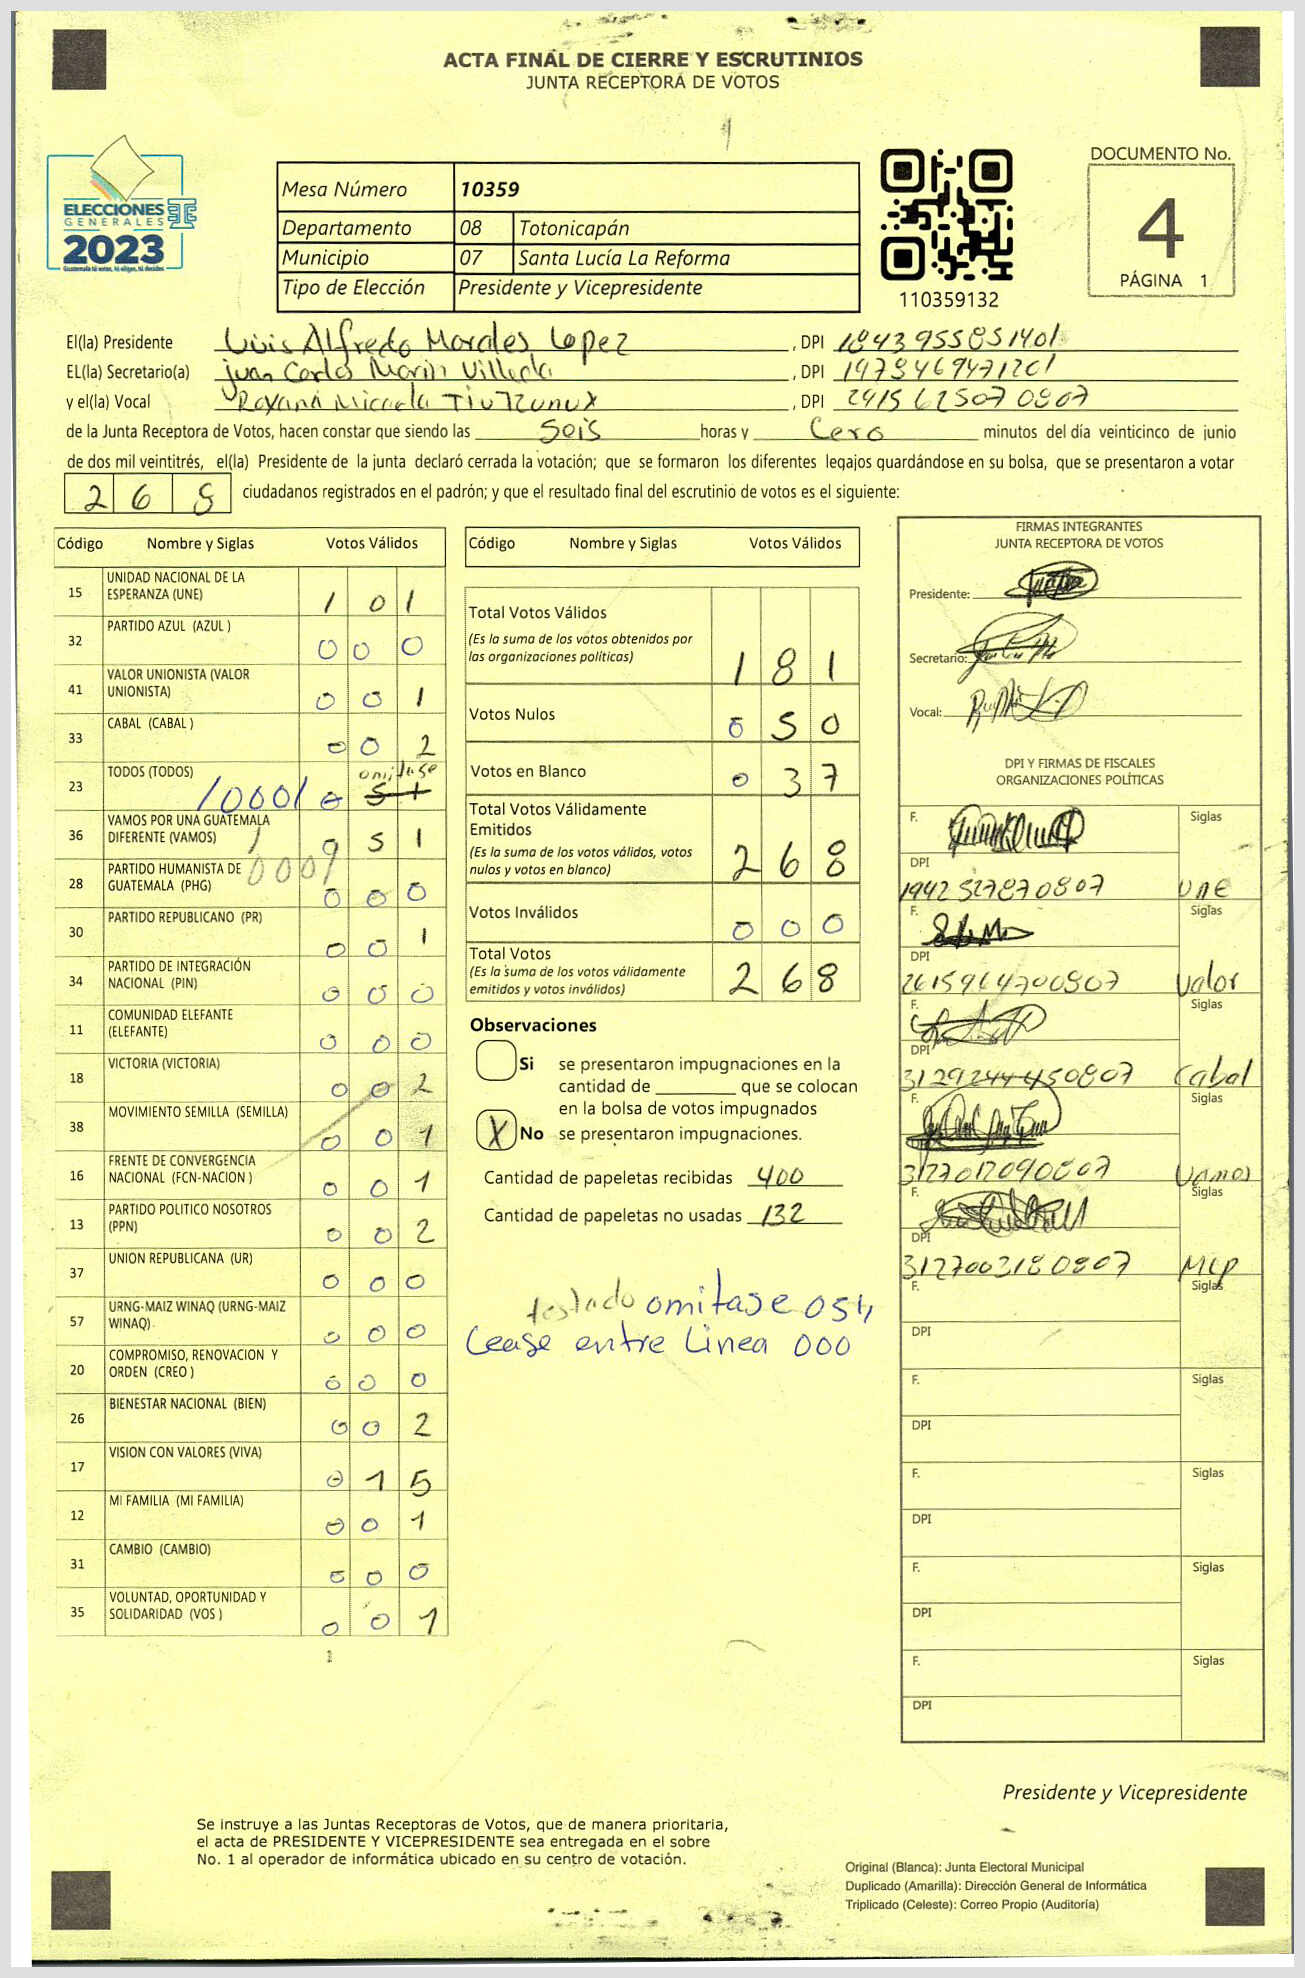 ACTA FINAL DE CIERRE Y ESCRUTINIOS
JUNTA RECEPTORA DE VOTOS
ELECCIONES
GENERALES
2023
Mesa Número 10359
Departamento 08 Totonicapán
Municipio 07 Santa Lucía La Reforma
Tipo de Elección Presidente y Vicepresidente
110359132
DOCUMENTO No.
4
PÁGINA 1
El(la) Presidente Luis Alfredo Morales Lopez, DPI 1843955851401
EL(la) Secretario(a) Juan Carlos Marin Villeda, DPI 1973469471201
y el(la) Vocal Roxana Micaela Tiu Tzunux, DPI 2415625070807
de la Junta Receptora de Votos, hacen constar que siendo las Seis horas y Cero minutos del día veinticinco de junio
de dos mil veintitrés, el(la) Presidente de la junta declaró cerrada la votación; que se formaron los diferentes legajos guardándose en su bolsa, que se presentaron a votar
268 ciudadanos registrados en el padrón; y que el resultado final del escrutinio de votos es el siguiente:
Código Nombre y Siglas Votos Válidos
15 UNIDAD NACIONAL DE LA ESPERANZA (UNE) 101
32 PARTIDO AZUL (AZUL ) 000
41 VALOR UNIONISTA (VALOR UNIONISTA) 001
33 CABAL (CABAL ) 002
23 TODOS (TODOS) /000/ 051 omitase
36 VAMOS POR UNA GUATEMALA DIFERENTE (VAMOS) 051
28 PARTIDO HUMANISTA DE GUATEMALA (PHG) 000
30 PARTIDO REPUBLICANO (PR) 001
34 PARTIDO DE INTEGRACIÓN NACIONAL (PIN) 000
11 COMUNIDAD ELEFANTE (ELEFANTE) 000
18 VICTORIA (VICTORIA) 002
38 MOVIMIENTO SEMILLA (SEMILLA) 001
16 FRENTE DE CONVERGENCIA NACIONAL (FCN-NACION ) 001
13 PARTIDO POLITICO NOSOTROS (PPN) 002
37 UNION REPUBLICANA (UR) 000
57 URNG-MAIZ WINAQ (URNG-MAIZ WINAQ) 000
20 COMPROMISO, RENOVACION Y ORDEN (CREO ) 000
26 BIENESTAR NACIONAL (BIEN) 002
17 VISION CON VALORES (VIVA) 015
12 MI FAMILIA (MI FAMILIA) 001
31 CAMBIO (CAMBIO) 000
35 VOLUNTAD, OPORTUNIDAD Y SOLIDARIDAD (VOS ) 001
Código Nombre y Siglas Votos Válidos
Total Votos Válidos 181
(Es la suma de los votos obtenidos por
las organizaciones políticas)
Votos Nulos 050
Votos en Blanco 037
Total Votos Válidamente
Emitidos 268
(Es la suma de los votos válidos, votos
nulos y votos en blanco)
Votos Inválidos 000
Total Votos 268
(Es la suma de los votos válidamente
emitidos y votos inválidos)
Observaciones
Si se presentaron impugnaciones en la
cantidad de ________ que se colocan
en la bolsa de votos impugnados
X No se presentaron impugnaciones.
Cantidad de papeletas recibidas 400
Cantidad de papeletas no usadas 132
testado omitase 051,
Lease entre Linea 000
FIRMAS INTEGRANTES
JUNTA RECEPTORA DE VOTOS
Presidente:
Secretario:
Vocal:
DPI Y FIRMAS DE FISCALES
ORGANIZACIONES POLÍTICAS
F. Siglas
DPI
1942527870807 UNE
F. Siglas
DPI
2615964700807 Valor
F. Siglas
DPI
3129244450807 Cabal
F. Siglas
DPI
3127017090807 Vamos
F. Siglas
DPI
3127003180807 MLP
F. Siglas
DPI
F. Siglas
DPI
F. Siglas
DPI
F. Siglas
DPI
F. Siglas
DPI
Presidente y Vicepresidente
Se instruye a las Juntas Receptoras de Votos, que de manera prioritaria,
el acta de PRESIDENTE Y VICEPRESIDENTE sea entregada en el sobre
No. 1 al operador de informática ubicado en su centro de votación.
Original (Blanca): Junta Electoral Municipal
Duplicado (Amarilla): Dirección General de Informática
Triplicado (Celeste): Correo Propio (Auditoría)